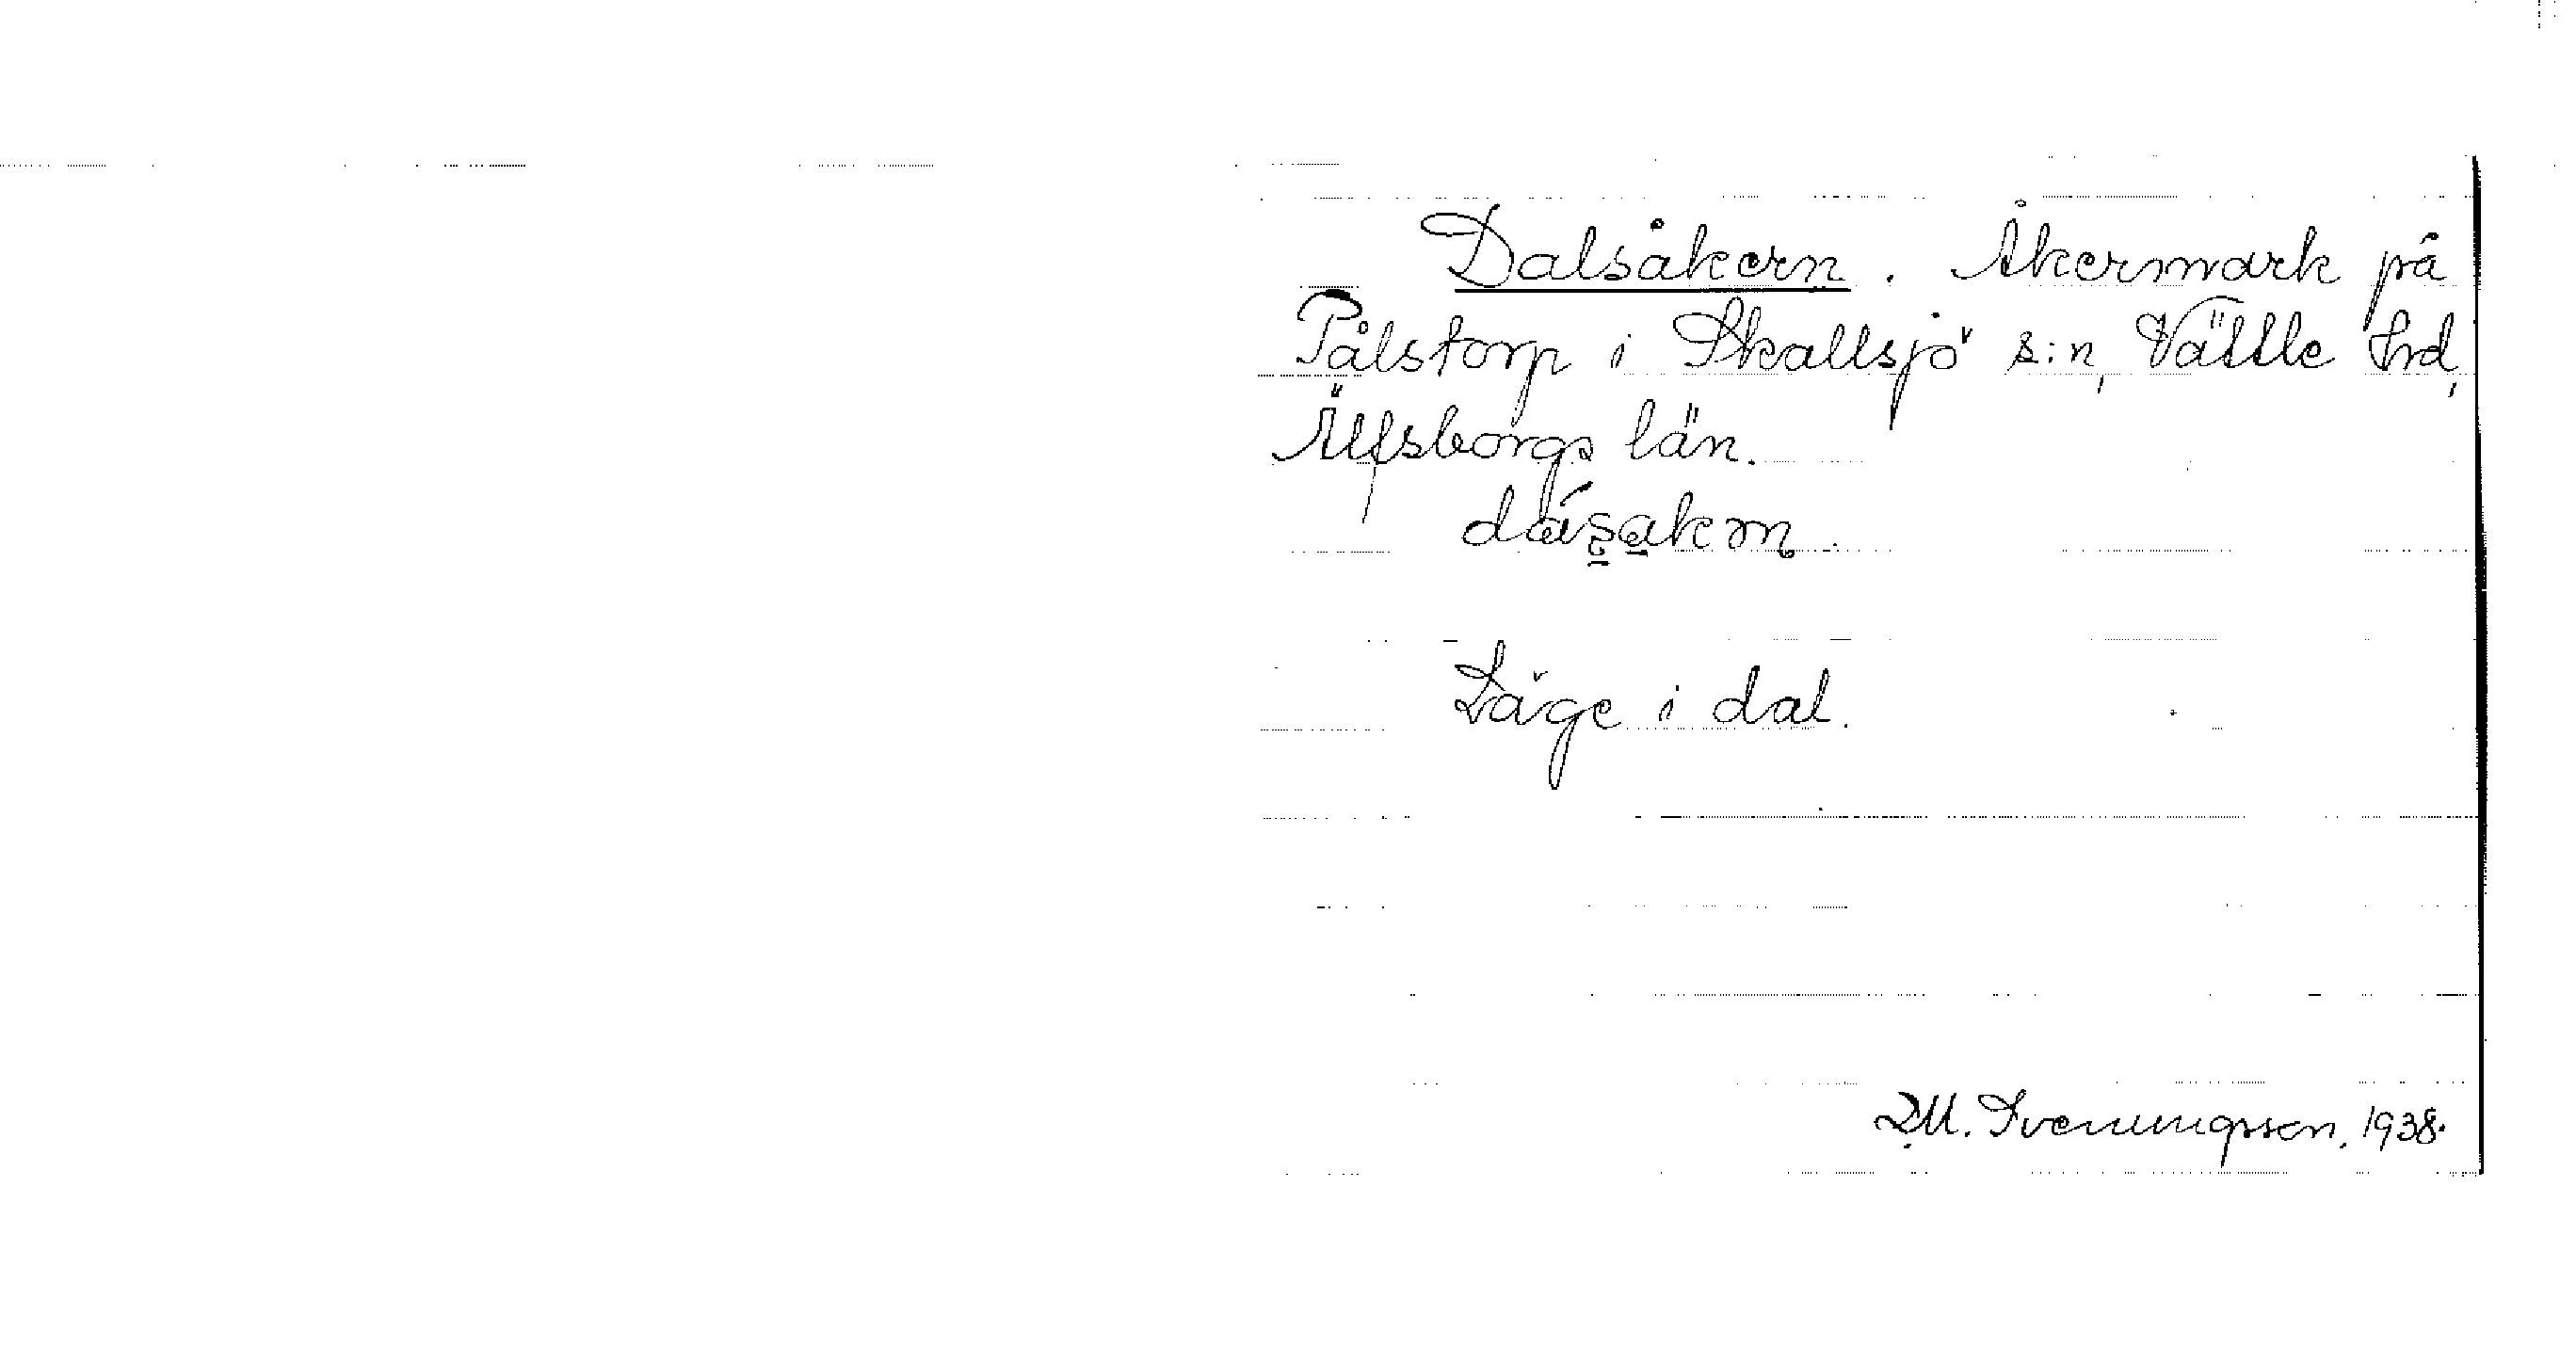 Dalsåkern. Åkermark på
Pålstorp i Skallsjö s:n, Vättle hrd,
Älfsborgs län.
Läge i dal.
D.M. Svenungsson. 1938.